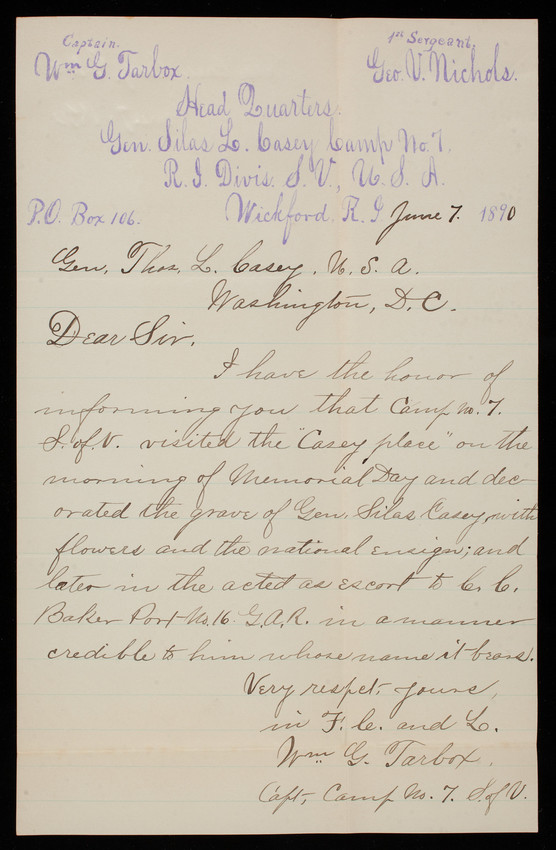 Captain. 1st Sergeant.
Wm G. Tarbox. Geo. V. Nichols.
Head Quarters.
Gen. Silas L. Casey Camp No. 7.
R. I. Divis. S. V., U. S. A.
P.O. Box 106. Wickford, R. I. June 7. 1890
Gen. Thos. L. Casey, U. S. A.
Washington, D. C.
Dear Sir,
I have the honor of
informing you that Camp No. 7.
S. of. V. visited the "Casey place" on the
morning of Memorial Day and dec-
orated the grave of Gen. Silas Casey with
flowers and the national ensign; and
later in the acted as escort to C. C.
Baker Post No. 16 G.A.R. in a manner
credible to him whose name it bears.
Very respct, yours,
in F. C. and L.
Wm G. Tarbox.
Capt, Camp No. 7. S. of V.